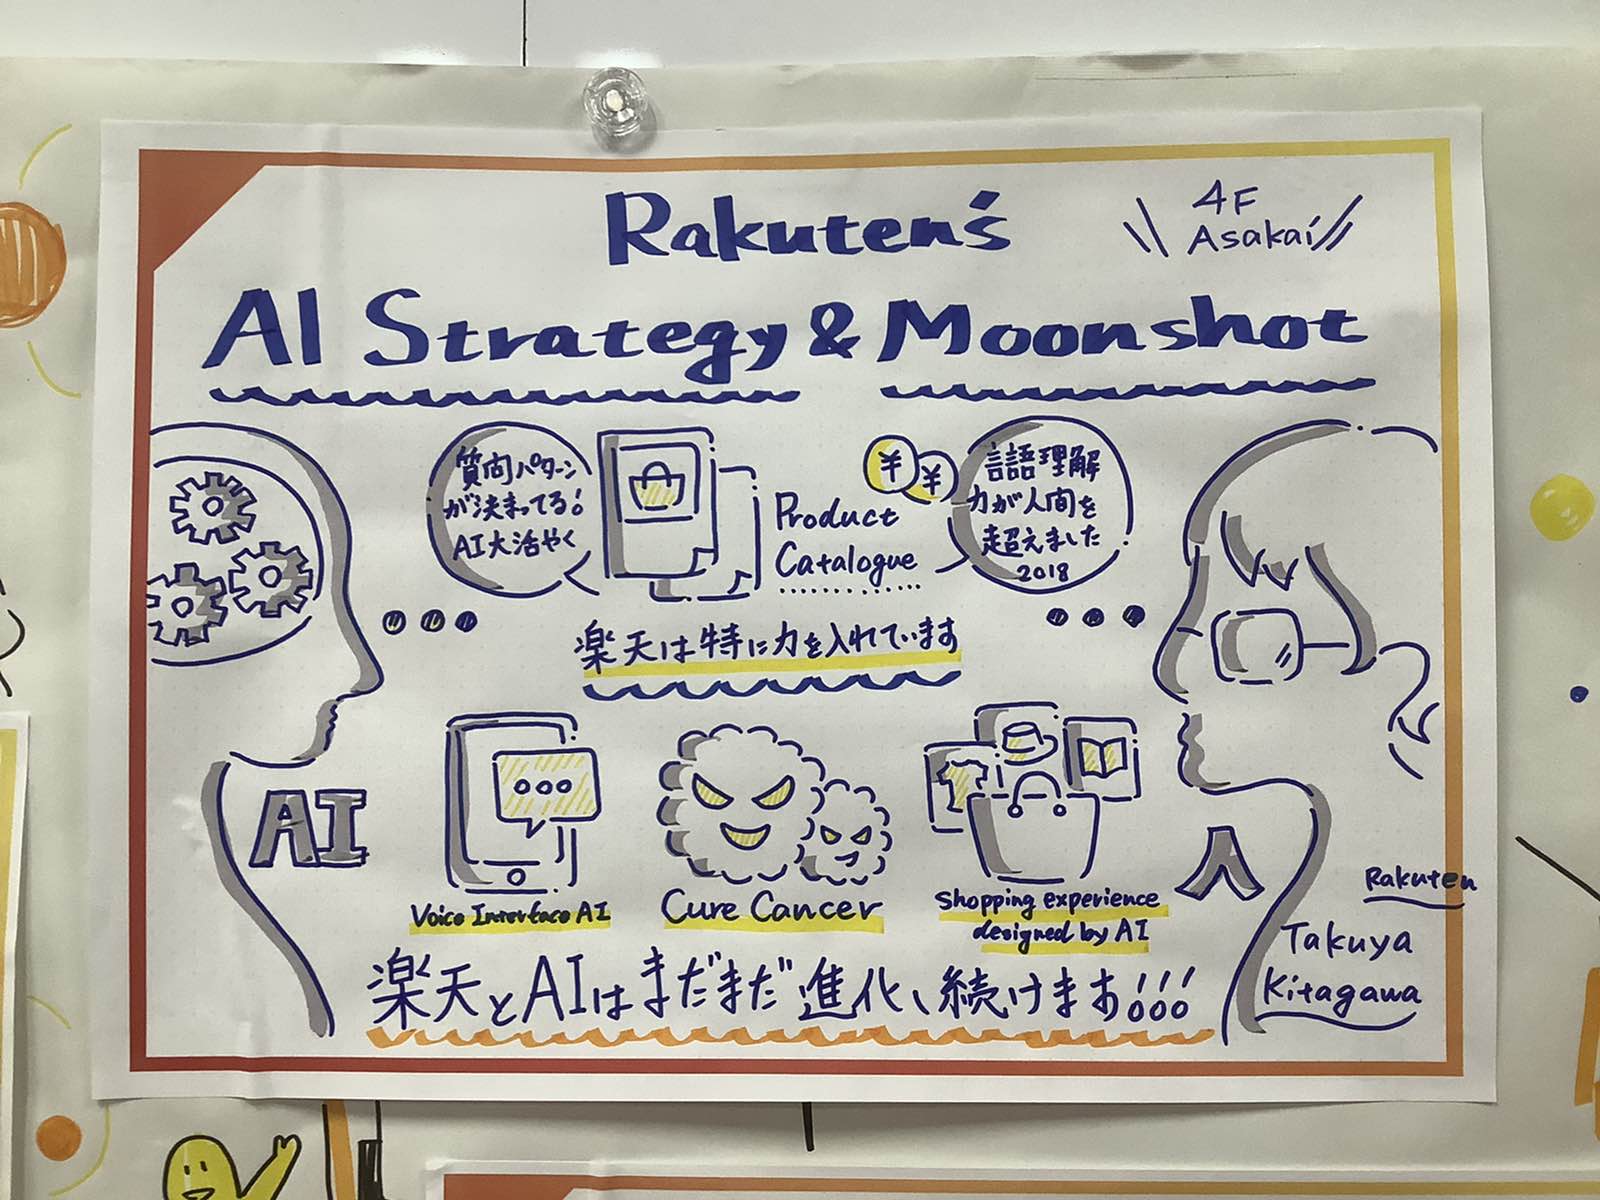 Rakuten's
4F
Asakai
AI Strategy & Moonshot
質問パターン
が決まってる!
AI大活やく
Product
Catalogue
¥
¥
言語理解
力が人間を
超えました
2018
楽天は特に力を入れています
AI
Voice Interface AI
Cure Cancer
Shopping experience
designed by AI
人
Rakuten
Takuya
Kitagawa
楽天とAIはまだまだ進化、続けます!!!